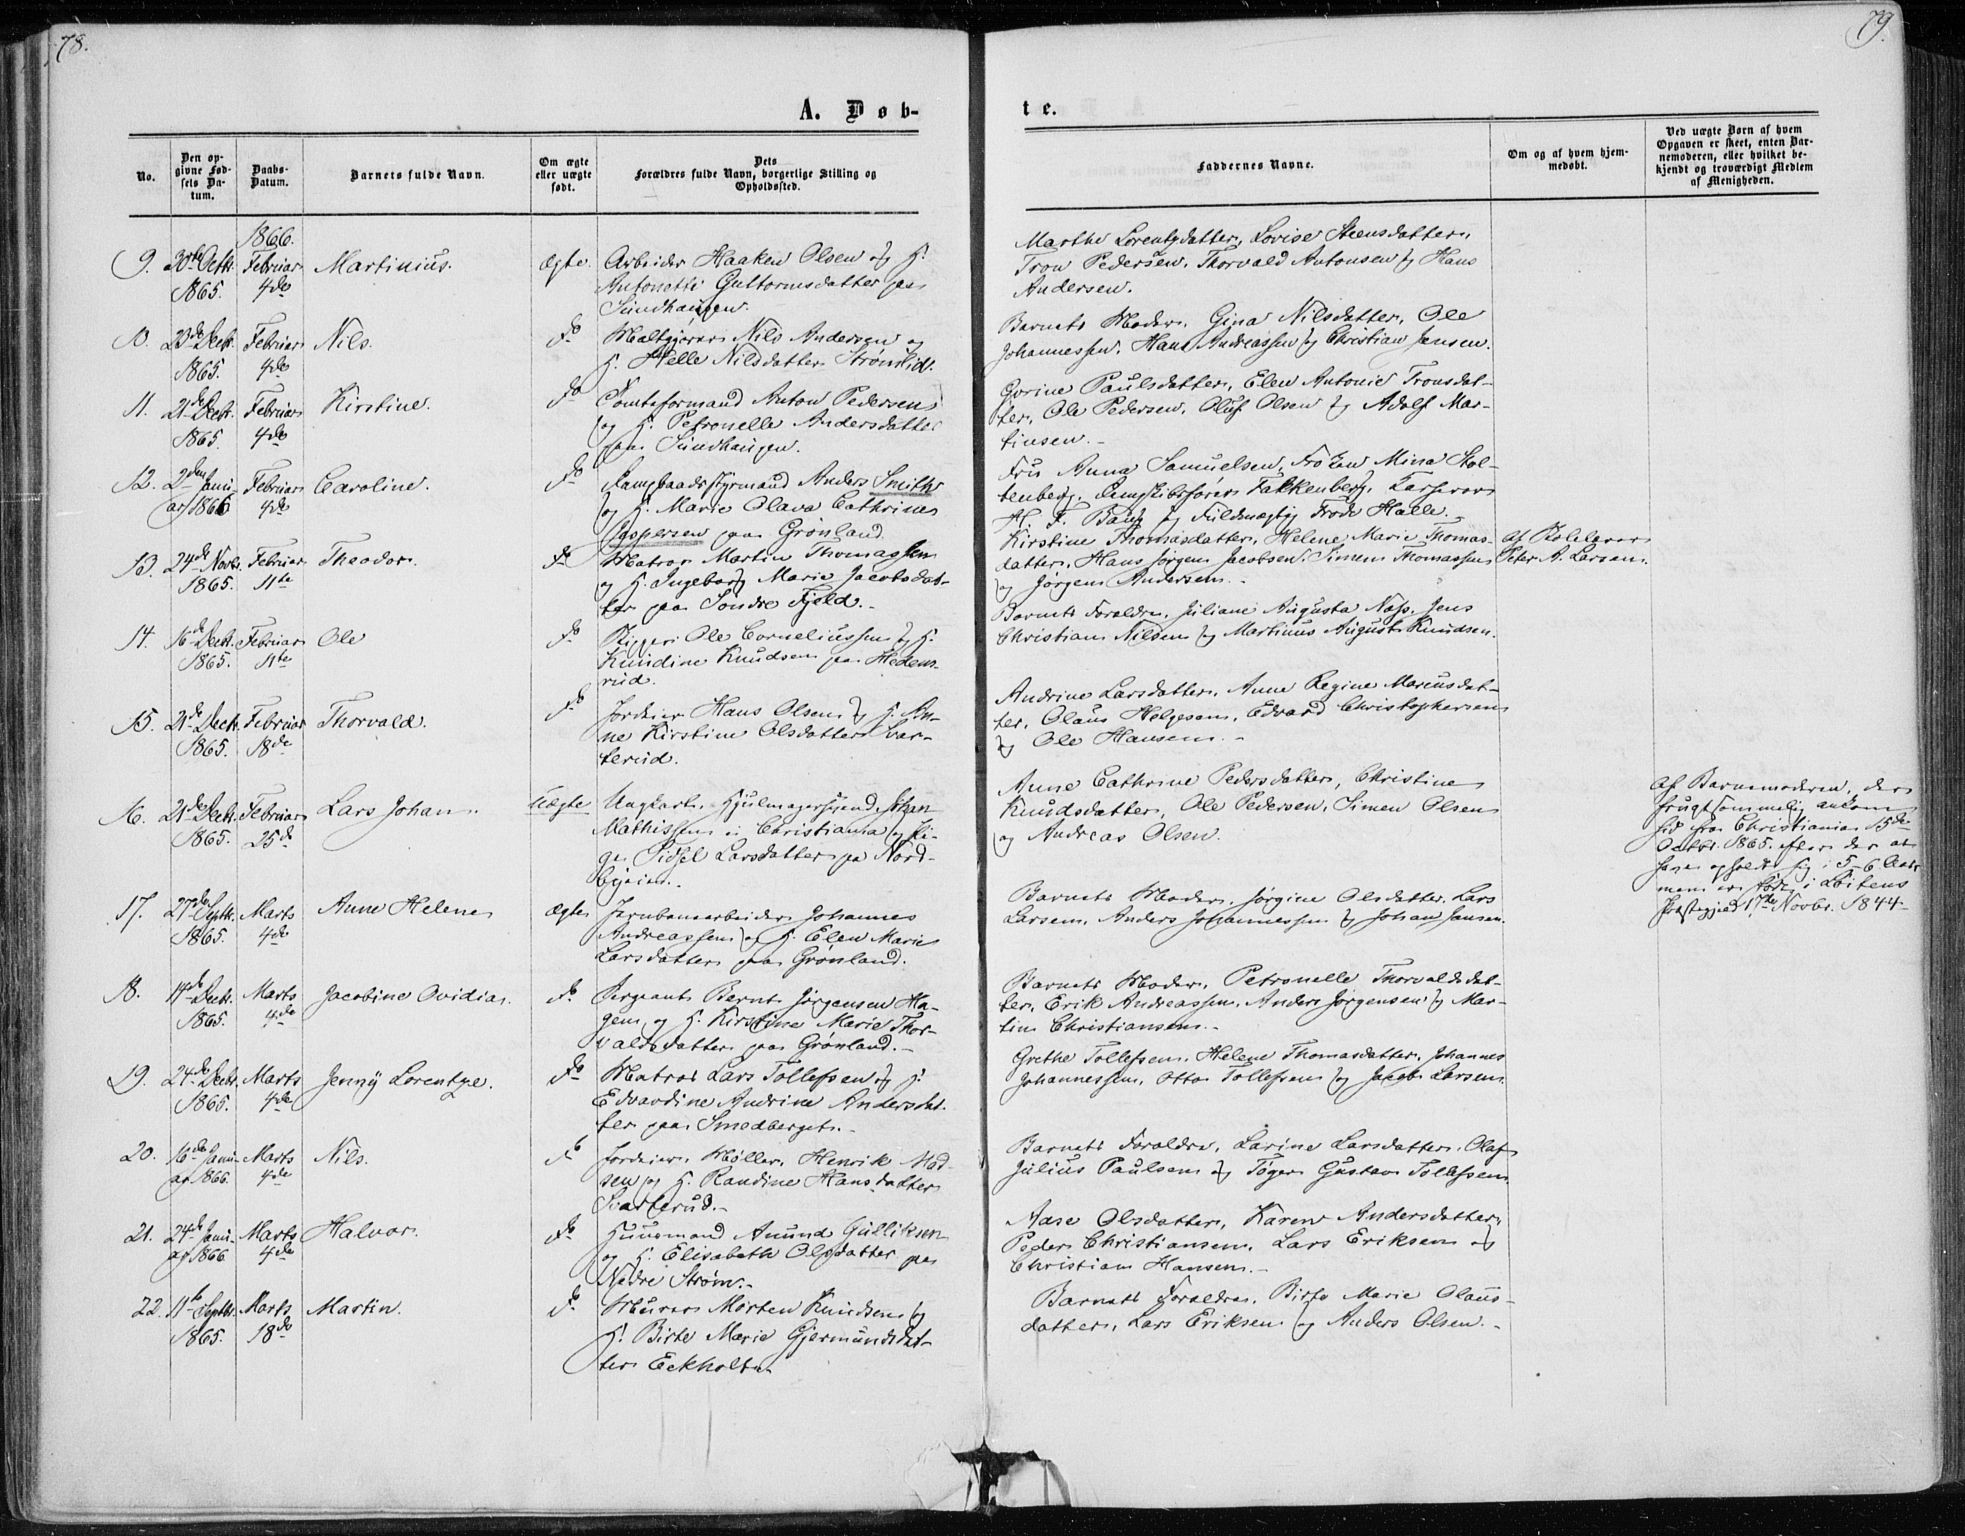 78.
79.
A. Døb-
te.
No.
Den op-
givne Fød-
sels Da-
tum.
Daabs-
Datum.
Barnets fulde Navn.
Om ægte
eller uægte
født.
Dets
Forældres fulde Navn, borgerlige Stilling og
Opholdssted.
Faddernes Navne.
Om og af hvem hjem-
medøbt.
Ved uægte Børn af hvem
Opgaven er skeet, enten Bar-
nemoderen, eller hvilket be-
kjendt og troværdigt Medlem
af Menigheden.
1866.
9. 30te Octb. 1865. Februar 4de Martinius. Ægte. Arbeider Haaken Olsen og H.
Antonette Guttormsdatter paa
Sundhaugen.
Marthe Lorentsdatter, Lovise Steensdatter,
Tron Pedersen, Thorvald Antonsen og Hans
Andersen.
10. 23de Decb. 1865. Februar 4de Nils. do Maltgjører Nils Andersen og
H. Helle Nilsdatter Strømlid.
Barnets Moder, Gina Nilsdatter, Ole
Johannessen, Hans Andreassen og Christian Jensen.
11. 21de Decb. 1865. Februar 4de Kirstine. do Tomteformand Anton Pedersen
og H. Petronelle Andersdatter
paa Sundhaugen.
Gorine Paulsdatter, Elen Antonie Tronsdat-
ter, Ole Pedersen, Oluf Olsen og Adolf Mar-
tinsen.
12. 2den Janu-
ar 1866 Februar 4de Caroline. do Dampbaadsstyrmand Anders Smith
og H. Marie Olava Cathrine
Jespersen paa Grønland.
Fru Anna Samuelsen, Frøken Mina Stol-
tenberg, Dampskibsfører Falkenberg, Kasserer
H. F. Bang og Fuldmægtig Frode Halle.
13. 24de Novbr. 1865. Februar 11te Theodor. do Matros Martin Thomassen
og H. Ingeborg Marie Jacobsdat-
ter paa Søndre Fjeld.
Kirstine Thomasdatter, Helene Marie Thomas-
datter, Hans Jørgen Jacobsen, Simen Thomassen
og Jørgen Andersen.
af
Peter A. Larsen.
14. 16de Decb. 1865. Februar 11te Ole do Rigger Ole Corneliussen og H.
Kundine Knudsen paa Hedens-
rud.
Barnets Forældre, Juliane Augusta Næss, Jens
Christian Nilsen og Martinus August Knudsen.
15. 21de Decb. 1865. Februar 18de Thorvald. do Jordeier Hans Olsen og H. An-
ne Kirstine Olsdatter Svar-
terud.
Andrine Larsdatter, Anne Regine Marcusdat-
ter, Olaus Helgesen, Edvard Christophersen
og Ole Hansen.
16. 21de Decb. 1865. Februar 25de Lars Johan. Uægte Ungkarl, Hjulmagersvend Johan
Mathissen i Christiania og Pi-
ge Sidsel Larsdatter paa Nord-
byeien.
Anne Cathrine Pedersdatter, Christine
Knudsdatter, Ole Pedersen, Simen Olsen
og Andreas Olsen.
Af Barnemoderen, der
frugtsommelig ankom
hid fra Christiania 15de
Octbr. 1865. efter der at
have opholdt sig i 5-6 Aar
men er født i Løitens
Præstegjeld 17de Novbr. 1844
17. 27de Septb. 1865. Marts 4de Anne Helene Ægte Jernbanearbeider Johannes
Andreassen og H. Elen Marie
Larsdatter paa Grønland.
Barnets Moder, Jørgine Olsdatter, Lars
Larsen, Anders Johannessen og Johan Jansen.
18. 14de Decb. 1865. Marts 4de Jacobine Ovidia. do Sergeant Bernt Jørgensen Ha-
gen og H. Kirstine Marie Thor-
valdsdatter paa Grønland.
Barnets Moder, Petronelle Thorvaldsdat-
ter, Erik Andreassen, Anders Jørgensen og Mar-
tin Christiansen.
19. 24de Decbr. 1865. Marts 4de Jenny Lorentze. do Matros Lars Tollefsen og H.
Edvardine Andrine Andersdat-
ter paa Smedberget.
Grethe Tollefsen, Helene Thomasdatter, Johannes
Johannessen, Otto Tollefsen og Jacob Larsen.
20. 16de Janu-
ar 1866. Marts 4de Nils. do Jordeier, Møller, Henrik Mad-
sen og H. Randine Hansdatter
Svarterud.
Barnets Forældre, Larine Larsdatter, Olaf
Julius Paulsen og Tøger Gustav Tollefsen.
21. 24de Janu-
ar 1866 Marts 4de Halvor. do Huusmand Anund Gulliksen
og H. Elisabeth Olsdatter paa
Nedre Strøm.
Aase Olsdatter, Karen Andersdatter,
Peder Christiansen, Lars Eriksen og
Christian Hansen.
22 11te Septbr. 1865. Marts 18de Martin. do Murer Morten Knudsen og
H. Birte Marie Gjermundsdat-
ter Eckholt.
Barnets Forældre, Birte Marie Olaus-
datter, Lars Eriksen og Anders Olsen.